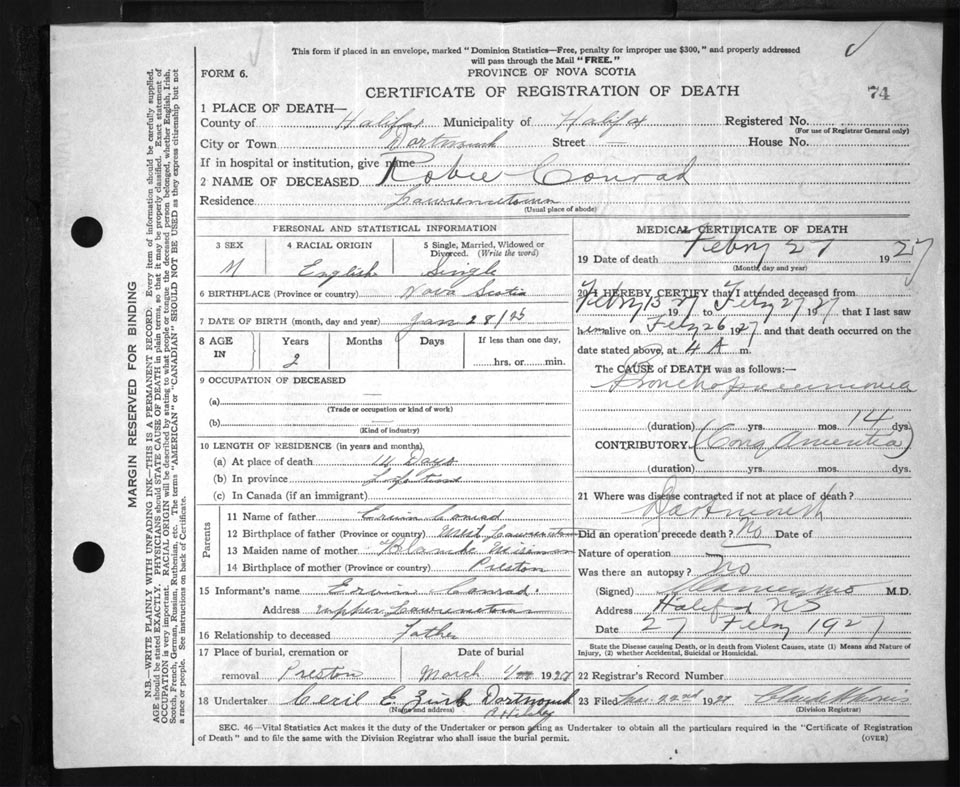 This form if placed in an envelope, marked "Dominion Statistics—Free, penalty for improper use $300," and properly addressed
will pass through the Mail "FREE."
FORM 6.
PROVINCE OF NOVA SCOTIA
CERTIFICATE OF REGISTRATION OF DEATH
74
1 PLACE OF DEATH—
County of Halifax Municipality of Halifax Registered No.
(For use of Registrar General only)
City or Town Dartmouth Street — House No.
If in hospital or institution, give name
2 NAME OF DECEASED Robie Conrad
Residence Lawrencetown
(Usual place of abode)
PERSONAL AND STATISTICAL INFORMATION
3 SEX 4 RACIAL ORIGIN 5 Single, Married, Widowed or Divorced. (Write the word)
M English Single
6 BIRTHPLACE (Province or country) Nova Scotia
7 DATE OF BIRTH (month, day and year) Jan 28/25
8 AGE IN Years Months Days If less than one day,
2 hrs. or min.
9 OCCUPATION OF DECEASED
(a) —
(Trade or occupation or kind of work)
(b) —
(Kind of industry)
10 LENGTH OF RESIDENCE (in years and months)
(a) At place of death 14 Days
(b) In province Life time
(c) In Canada (if an immigrant)
Parents
11 Name of father Erwin Conrad
12 Birthplace of father (Province or country) West Lawrencetown
13 Maiden name of mother Blanche
14 Birthplace of mother (Province or country) Preston
15 Informant's name Erwin Conrad
Address Upper Lawrencetown
16 Relationship to deceased Father
17 Place of burial, cremation or Date of burial
removal Preston March 1927
18 Undertaker Cecil E. Zink Dartmouth
(Name and address)
MEDICAL CERTIFICATE OF DEATH
19 Date of death Febry 27 1927
(Month, day and year)
20 I HEREBY CERTIFY that I attended deceased from
Febry 13 1927 to Feby 27 1927 that I last saw
him alive on Feby 26 1927 and that death occurred on
date stated above, at 4 A m.
The CAUSE of DEATH was as follows:—
Bronchopneumonia
(duration) yrs. mos. 14 dys.
CONTRIBUTORY (Cong Amentia)
(duration) yrs. mos. dys.
21 Where was disease contracted if not at place of death?
Dartmouth
Did an operation precede death? No Date of
Nature of operation
Was there an autopsy? No
(Signed) M.D.
Address Halifax NS
Date 27 Febry 1927
State the Disease causing Death, or in death from Violent Causes, state (1) Means and Nature of
Injury, (2) whether Accidental, Suicidal or Homicidal.
22 Registrar's Record Number
23 Filed 22nd 1927
(Division Registrar)
SEC. 46—Vital Statistics Act makes it the duty of the Undertaker or person acting as Undertaker to obtain all the particulars required in the "Certificate of Registration
of Death" and to file the same with the Division Registrar who shall issue the burial permit.
(OVER)
MARGIN RESERVED FOR BINDING
N.B.—WRITE PLAINLY WITH UNFADING INK—THIS IS A PERMANENT RECORD: Every item of information should be carefully supplied.
AGE should be stated EXACTLY. PHYSICIANS should STATE CAUSE OF DEATH in plain terms, so that it may be properly classified. Exact statement of
OCCUPATION is very important. RACIAL ORIGIN will be described by stating to what people or tongue the deceased person belonged, whether English, Irish,
Scotch, French, German, Russian, Ruthenian, etc. The terms "AMERICAN" or "CANADIAN" SHOULD NOT BE USED as they express citizenship but not
a race or people. See instructions on back of Certificate.